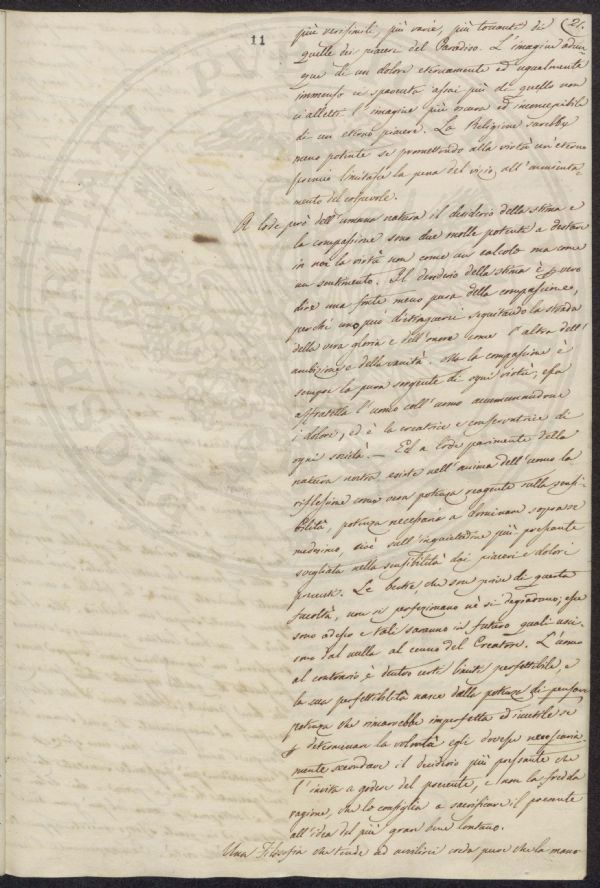 11
(21.
più verisimili, più varie, più toccanti di
quelle dei piaceri del Paradiso. L'imagine adun-
que di un dolore eternamente ed ugualmente
immenso ci spaventa assai più di quello non
ci alletti l'imagine più oscura ed inconcepibile
di un eterno piacere. La Religione sarebbe
meno potente se promettendo alla virtù un'eterno
premio limitasse la pena del vizio all'annienta-
mento del colpevole.
A lode però dell'umana natura il desiderio della stima e
la compassione sono due molle potenti a destare
in noi la virtù non come un calcolo ma come
un sentimento. Il desiderio della stima è per vero
dire una fonte meno pura della compassione,
perchè uno può distinguersi seguitando la strada
della vera gloria e dell'onore come l'altra dell'
ambizione e della vanità. Ma la compassione è
sempre la pura sorgente di ogni virtù; essa
affratella l'uomo coll'uomo accomunandone
i dolori, ed è la creatrice e conservatrice di
ogni società. — Ed a lode parimente della
natura nostra esiste nell'anima dell'uomo la
riflessione come una potenza reagente sulla sensi-
bilità, potenza necessaria a dominare sopra se
medesimo, cioè sull'inquietudine più pressante
svegliata nella sensibilità dai piaceri e dolori
presenti. Le bestie, che son prive di questa
facoltà, non si perfezionano nè si degradano; esse
sono adesso e tali saranno in futuro quali usci-
rono dal nulla al cenno del Creatore. L'uomo
al contrario è dentro certi limiti perfettibile e
la sua perfettibilità nasce dalla potenza di pensare
potenza che rimarrebbe imperfetta ed inutile se
per determinare la volontà egli dovesse necessaria-
mente secondare il desiderio più pressante che
l'invita a godere del presente, e non la fredda
ragione, che lo consiglia a sacrificare il presente
all'idea del più gran bene lontano.
Una Filosofia che tende ad avvilirci creda pure che la mano